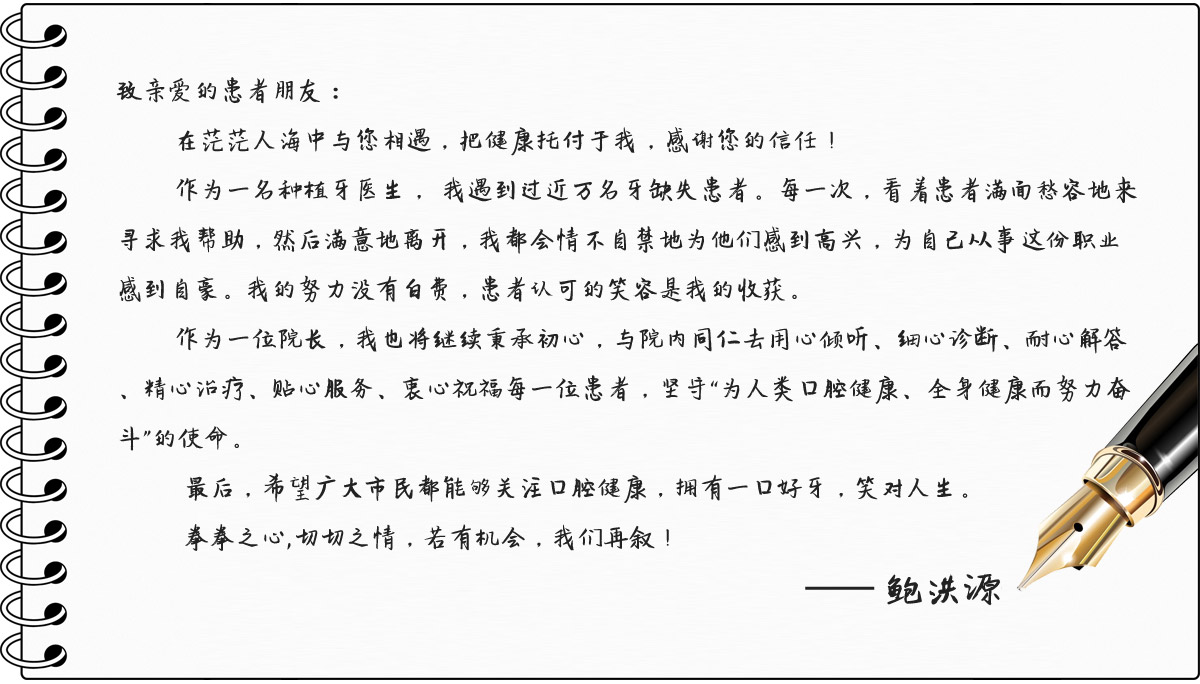 致亲爱的患者朋友：
在茫茫人海中与您相遇，把健康托付于我，感谢您的信任！
作为一名种植牙医生， 我遇到过近万名牙缺失患者。每一次，看着患者满面愁容地来
寻求我帮助，然后满意地离开，我都会情不自禁地为他们感到高兴，为自己从事这份职业
感到自豪。我的努力没有白费，患者认可的笑容是我的收获。
作为一位院长，我也将继续秉承初心，与院内同仁去用心倾听、细心诊断、耐心解答
、精心治疗、贴心服务、衷心祝福每一位患者，坚守“为人类口腔健康、全身健康而努力奋
斗”的使命。
最后，希望广大市民都能够关注口腔健康，拥有一口好牙，笑对人生。
拳拳之心,切切之情，若有机会，我们再叙！
—— 鲍洪源